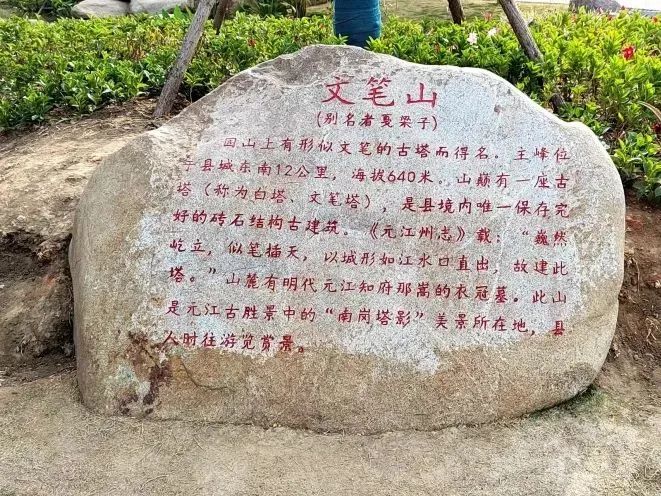 文笔山
(别名者戛梁子)
因山上有形似文笔的古塔而得名。主峰位
于县城东南12公里，海拔640米。山巅有一座古
塔（称为白塔、文笔塔），是县境内唯一保存完
好的砖石结构古建筑。《元江州志》载：“巍然
屹立，似笔插天，以城形如江水口直出，故建此
塔。”山麓有明代元江知府那嵩的衣冠墓。此山
是元江古胜景中的“南岗塔影”美景所在地，县
人时往游览赏景。